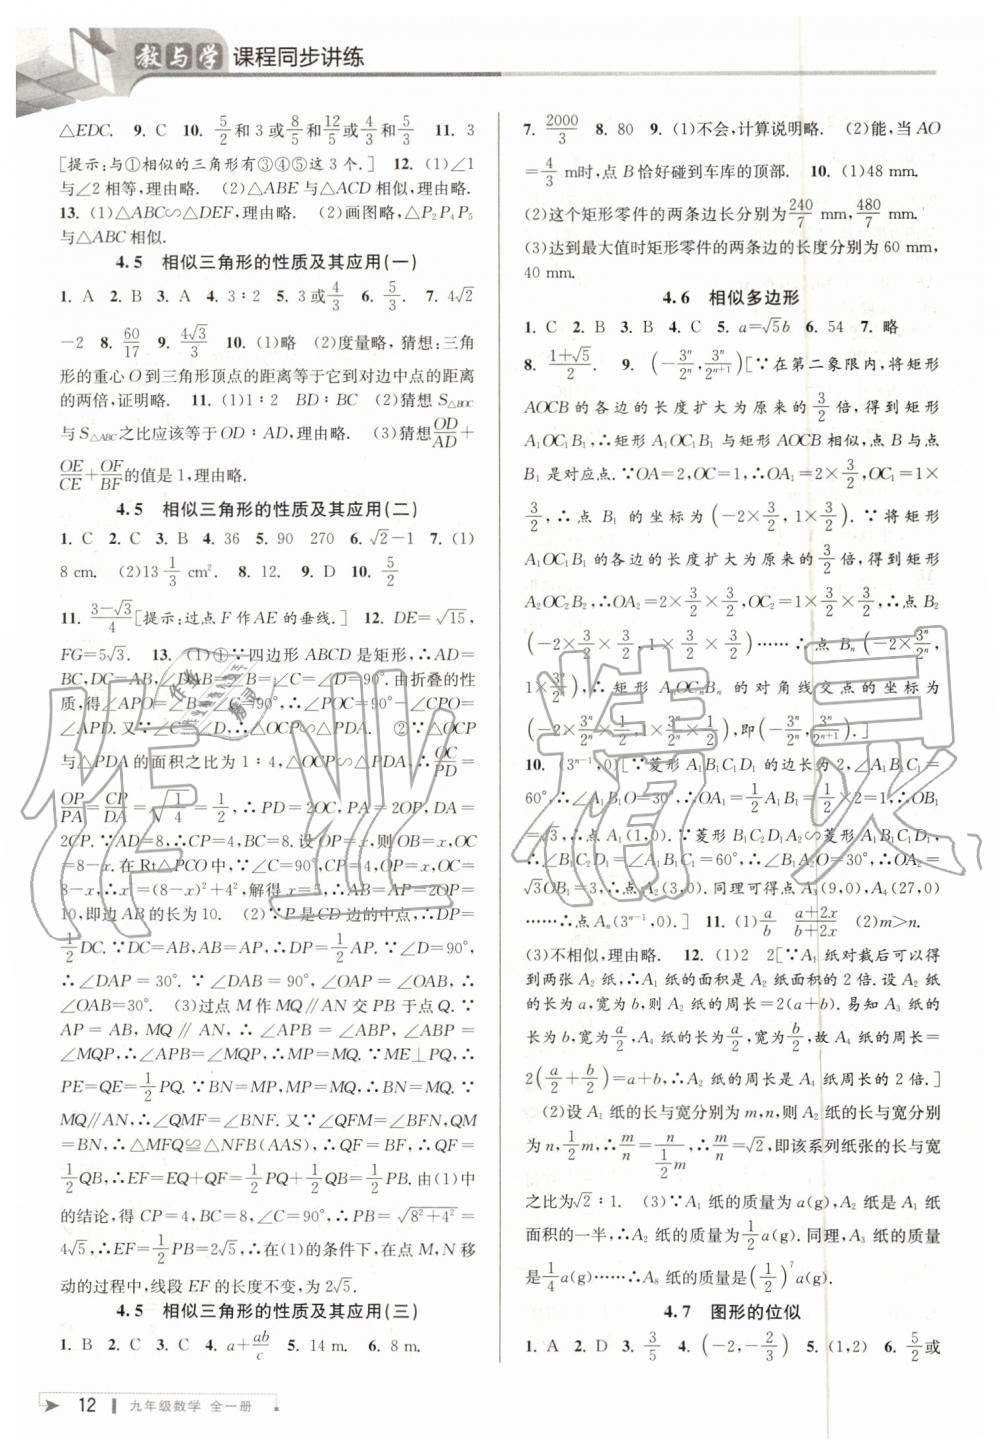 教与学 课程同步讲练
△EDC. 9. C 10. 5/2和3或8/5和12/5或4/3和5/3 11. 3
[提示:与①相似的三角形有③④⑤这3个.] 12. (1)∠1
与∠2相等,理由略. (2)△ABE与△ACD相似,理由略.
13. (1)△ABC∽△DEF,理由略. (2)画图略,△P₂P₄P₅
与△ABC相似.
4.5 相似三角形的性质及其应用(一)
1. A 2. B 3. A 4. 3∶2 5. 3或4/3 6. 5/3. 7. 4√2
-2 8. 60/17 9. 4√3/3 10. (1)略 (2)度量略,猜想:三角
形的重心O到三角形顶点的距离等于它到对边中点的距离
的两倍,证明略. 11. (1)1∶2 BD∶BC (2)猜想S△BOC
与S△ABC之比应该等于OD∶AD,理由略. (3)猜想OD/AD+
OE/CE+OF/BF的值是1,理由略.
4.5 相似三角形的性质及其应用(二)
1. C 2. C 3. B 4. 36 5. 90 270 6. √2-1 7. (1)
8 cm. (2)13 1/3 cm². 8. 12. 9. D 10. 5/2
11. (3-√3)/4[提示:过点F作AE的垂线.] 12. DE=√15,
FG=5√3. 13. (1)①∵四边形ABCD是矩形,∴AD=
BC,DC=AB,∠DAB=∠B=∠C=∠D=90°.由折叠的性
质,得∠APO=∠B=90°,∴∠POC=90°-∠CPO=
∠APD.又∵∠C=∠D,∴△OCP∽△PDA. ②∵△OCP
与△PDA的面积之比为1∶4,△OCP∽△PDA,∴OC/PD=
OP/PA=CP/DA=√(1/4)=1/2,∴PD=2OC,PA=2OP,DA=
2CP.∵AD=8,∴CP=4,BC=8.设OP=x,则OB=x,OC=
8-x.在Rt△PCO中,∵∠C=90°,CP=4,OP=x,OC=
8-x,∴x²=(8-x)²+4²,解得x=5,∴AB=AP=2OP=
10,即边AB的长为10. (2)∵P是CD边的中点,∴DP=
1/2DC.∵DC=AB,AB=AP,∴DP=1/2AP.∵∠D=90°,
∴∠DAP=30°.∵∠DAB=90°,∠OAP=∠OAB,∴
∠OAB=30°. (3)过点M作MQ∥AN交PB于点Q.∵
AP=AB,MQ∥AN,∴∠APB=∠ABP,∠ABP=
∠MQP,∴∠APB=∠MQP,∴MP=MQ.∵ME⊥PQ,∴
PE=QE=1/2PQ.∵BN=MP,MP=MQ,∴BN=MQ.∵
MQ∥AN,∴∠QMF=∠BNF.又∵∠QFM=∠BFN,QM
=BN,∴△MFQ≌△NFB(AAS),∴QF=BF,∴QF=
1/2QB,∴EF=EQ+QF=1/2PQ+1/2QB=1/2PB.由(1)中
的结论,得CP=4,BC=8,∠C=90°,∴PB=√(8²+4²)=
4√5,∴EF=1/2PB=2√5,∴在(1)的条件下,在点M,N移
动的过程中,线段EF的长度不变,为2√5.
4.5 相似三角形的性质及其应用(三)
1. B 2. C 3. C 4. a+ab/c 5. 14 m. 6. 8 m.
7. 2000/3 8. 80 9. (1)不会,计算说明略. (2)能,当AO
=4/3 m时,点B恰好碰到车库的顶部. 10. (1)48 mm.
(2)这个矩形零件的两条边长分别为240/7 mm,480/7 mm.
(3)达到最大值时矩形零件的两条边的长度分别为60 mm,
40 mm.
4.6 相似多边形
1. C 2. B 3. B 4. C 5. a=√5b 6. 54 7. 略
8. (1+√5)/2. 9. (-3ⁿ/2ⁿ,3ⁿ/2ⁿ⁺¹)[∵在第二象限内,将矩形
AOCB的各边的长度扩大为原来的3/2倍,得到矩形
A₁OC₁B₁,∴矩形A₁OC₁B₁与矩形AOCB相似,点B与点
B₁是对应点.∵OA=2,OC=1,∴OA₁=2×3/2,OC₁=1×
3/2,∴点B₁的坐标为(-2×3/2,1×3/2).∵将矩形
A₁OC₁B₁的各边的长度扩大为原来的3/2倍,得到矩形
A₂OC₂B₂,∴OA₂=2×3/2×3/2,OC₂=1×3/2×3/2,∴点B₂
(-2×3/2×3/2,1×3/2×3/2)……∴点Bₙ(-2×3ⁿ/2ⁿ,
1×3ⁿ/2ⁿ),∴矩形AₙOCₙBₙ的对角线交点的坐标为
(-2×3ⁿ/2ⁿ×1/2,1×3ⁿ/2ⁿ×1/2),即(-3ⁿ/2ⁿ,3ⁿ/2ⁿ⁺¹).]
10. (3ⁿ⁻¹,0)[∵菱形A₁B₁C₁D₁的边长为2,∠A₁B₁C₁=
60°,∴∠A₁B₁O=30°,∴OA₁=1/2A₁B₁=1/2×2=1,∴OB₁
=√3,∴点A₁(1,0).∵菱形B₁C₂D₁A₂∽菱形A₁B₁C₁D₁,
∴∠B₁C₂D₁=∠A₁B₁C₁=60°,∴∠B₁A₂O=30°,∴OA₂=
√3OB₁=3,∴点A₂(3,0).同理可得点A₃(9,0),A₄(27,0)
……∴点Aₙ(3ⁿ⁻¹,0).] 11. (1)a/b (a+2x)/(b+2x) (2)m>n.
(3)不相似,理由略. 12. (1)2 2[∵A₁纸对裁后可以得
到两张A₂纸,∴A₁纸的面积是A₂纸面积的2倍.设A₂纸
的长为a,宽为b,则A₂纸的周长=2(a+b).易知A₃纸的
长为b,宽为a/2,A₄纸的长为a/2,宽为b/2,故A₄纸的周长=
2(a/2+b/2)=a+b,∴A₂纸的周长是A₄纸周长的2倍.]
(2)设A₁纸的长与宽分别为m,n,则A₂纸的长与宽分别
为n,1/2m,∴m/n=n/(1/2m),∴m/n=√2,即该系列纸张的长与宽
之比为√2∶1. (3)∵A₁纸的质量为a(g),A₂纸是A₁纸
面积的一半,∴A₂纸的质量为1/2a(g).同理,A₃纸的质量
是1/4a(g)……∴A₈纸的质量是(1/2)⁷a(g).
4.7 图形的位似
1. A 2. D 3. 3/5 4. (-2,-2/3) 5. (1,2) 6. 5/2或
12 九年级数学 全一册
作业精灵